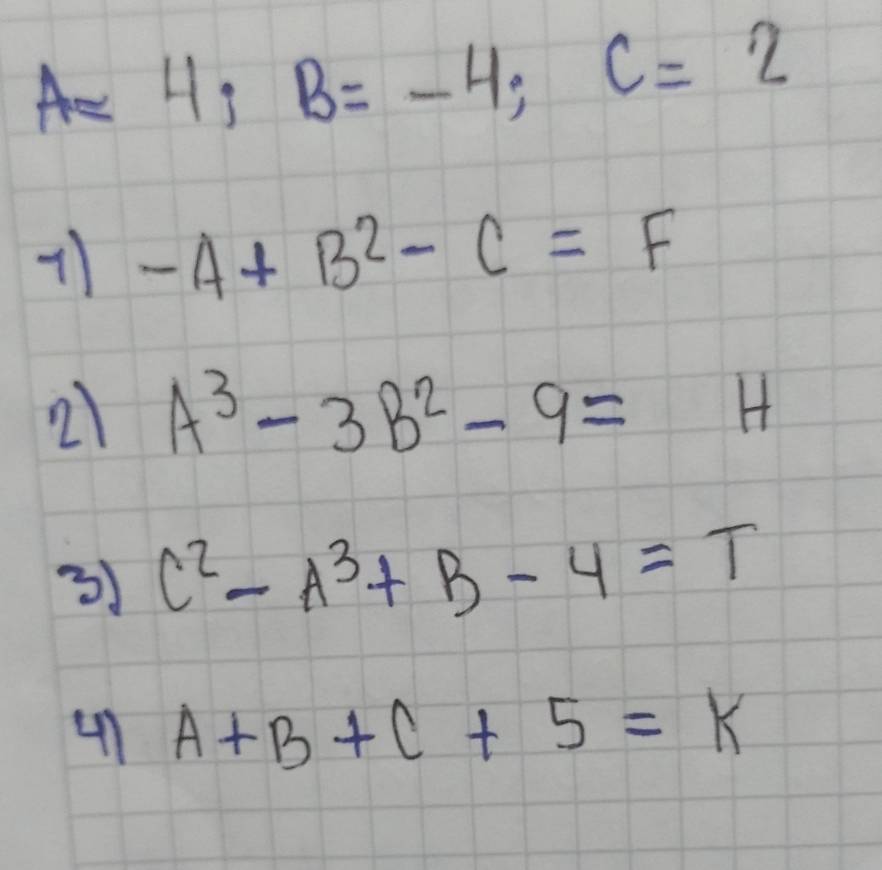 A= 4; B= -4; C= 2
1) -A + B² - C = F
2) A³ - 3B² - 9 = H
3) C² - A³ + B - 4 = T
4) A + B + C + 5 = K